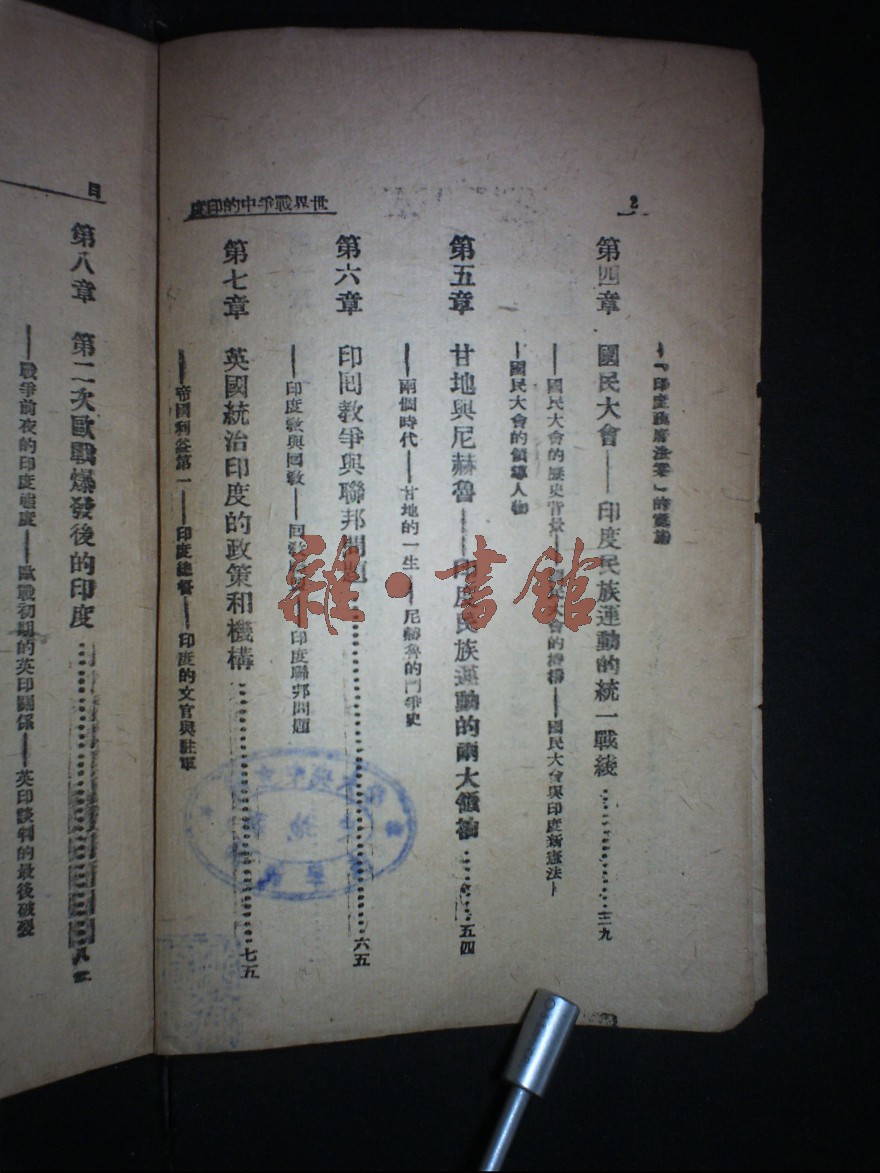 2
世界戰爭中的印度
——「印度政府法案」的
第四章 國民大會——印度民族運動的統一戰綫…………三九
——國民大會的歷史背景——國民大會的機構——國民大會與印度新憲法—
—國民大會的領導人物
第五章 甘地與尼赫魯——印度民族運動的兩大領袖…………五四
——兩個時代——甘地的一生——尼赫魯的鬥爭史
第六章 印囘教爭與聯邦問題…………六五
——印度敎與囘敎——囘敎——印度聯邦問題
第七章 英國統治印度的政策和機構…………七五
——帝國利益第一——印度總督——印度的文官與駐軍
目
第八章 第二次歐戰爆發後的印度…………八二
——戰爭前夜的印度態度——歐戰初期的英印關係——英印談判的最後破裂
雜·書館